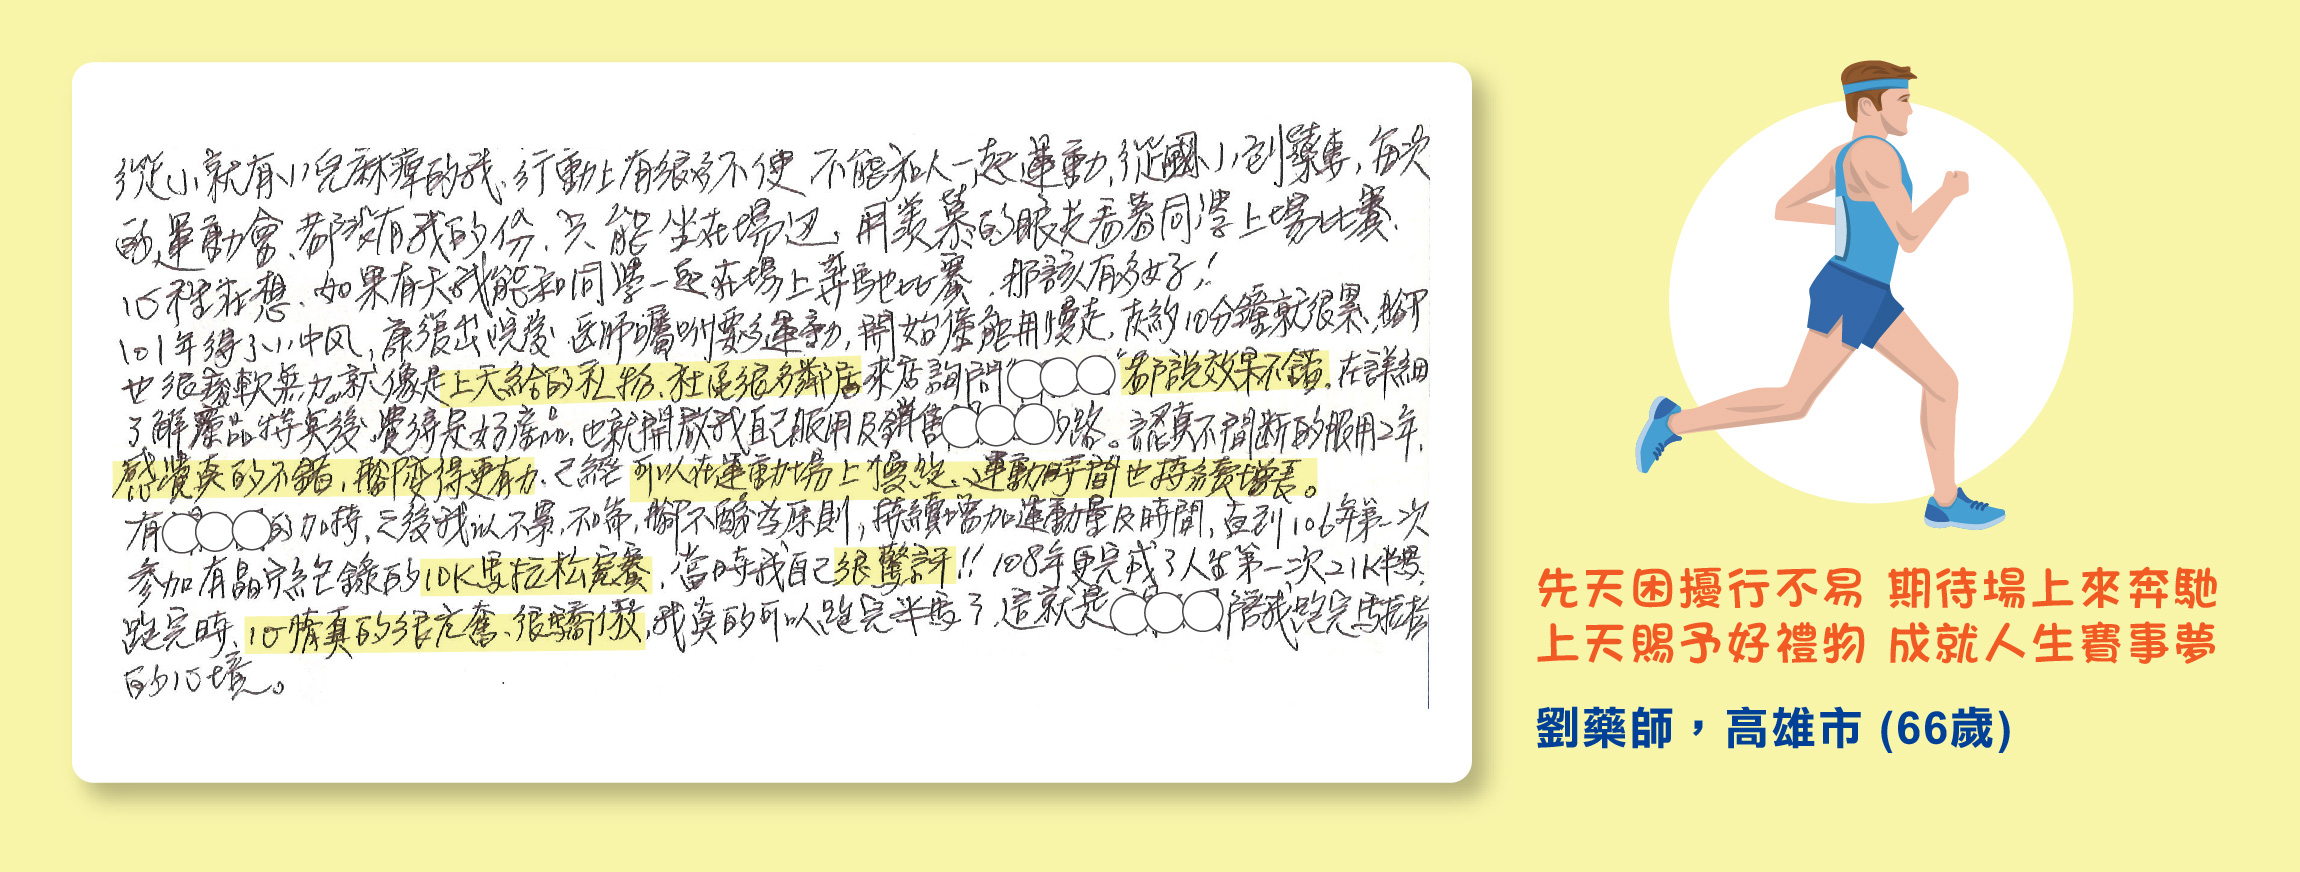 從小就有小兒麻痺的我、行動上有很多不便、不能和人一起運動,從國小到藥專,每次
的運動會、都沒有我的份、只能坐在場邊、用羨慕的眼光看著同學上場比賽、
心裡在想、如果有天我能和同學一起在場上奔馳比賽、那該有多好!
101年得了小中风,康復出院後、医師囑咐要多運動,開始僅能用慢走,大約10分鐘就很累、腳
也很痠軟無力。就像是上天給的礼物、社區很多鄰居來店詢問"○○○"都說效果不錯。在詳細
了解產品特真後、覺得是好產品、也就開啟我自己服用及銷售○○○的路。認真不間斷的服用2年、
感覺真的不錯,腳变得更有力、己經可以在運動場上慢跑、運動時間也持續增長。
有○○○的加持、之後我以不累、不喘、腳不酸為原則,持續增加運動量及時間,直到106年第一次
參加有晶片紀錄的10K馬拉松完賽,當時我自己很驚訝!!108年更完成了人生第一次21K半馬,
跑完時、心情真的很亢奮、很驕傲,我真的可以跑完半馬了,這就是○○○陪我跑完馬拉松
的心境。
先天困擾行不易 期待場上來奔馳
上天賜予好禮物 成就人生賽事夢
劉藥師,高雄市 (66歲)